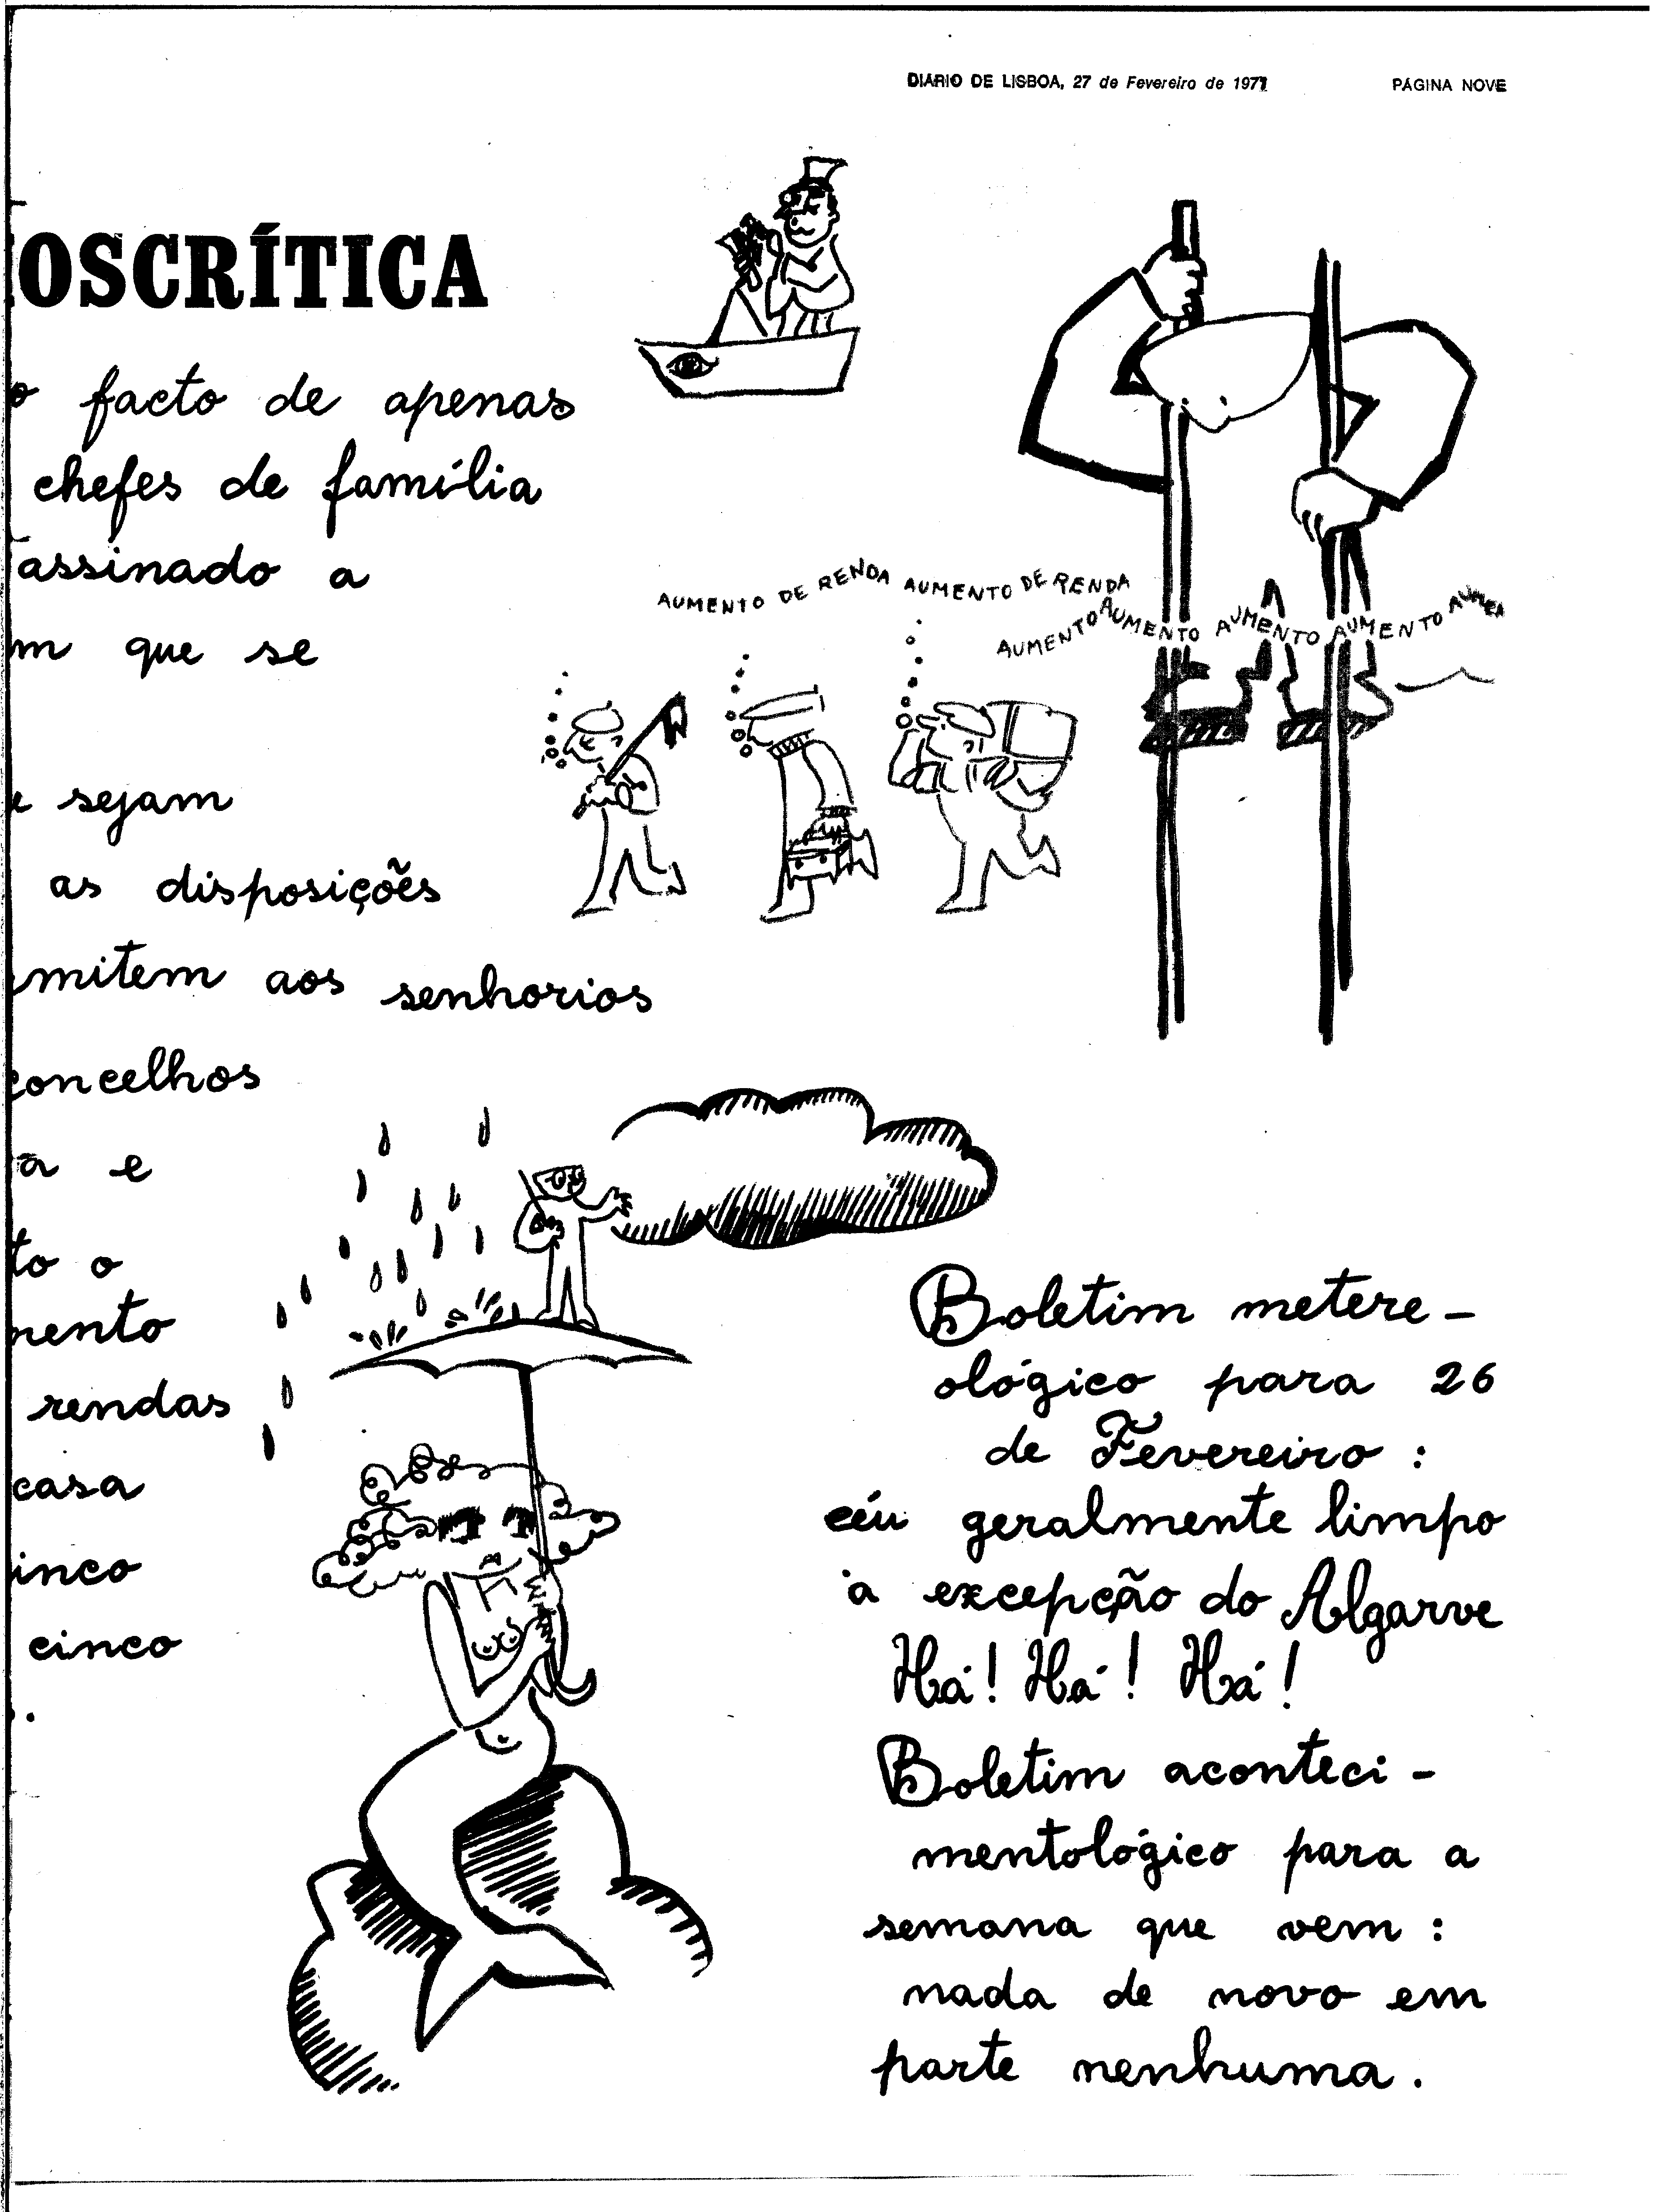 DIÁRIO DE LISBOA, 27 de Fevereiro de 1971 PÁGINA NOVE
OSCRÍTICA
o facto de apenas
chefes de família
assinado a
m que se
sejam
as disposições
mitem aos senhorios
concelhos
a e
to o
mento
rendas
casa
inco
cinco
.
AUMENTO DE RENDA AUMENTO DE RENDA
AUMENTO AUMENTO AUMENTO AUMENTO AUMEN
Boletim metere-
ológico para 26
de Fevereiro :
céu geralmente limpo
à excepção do Algarve
Há! Há! Há!
Boletim aconteci-
mentológico para a
semana que vem :
nada de novo em
parte nenhuma.